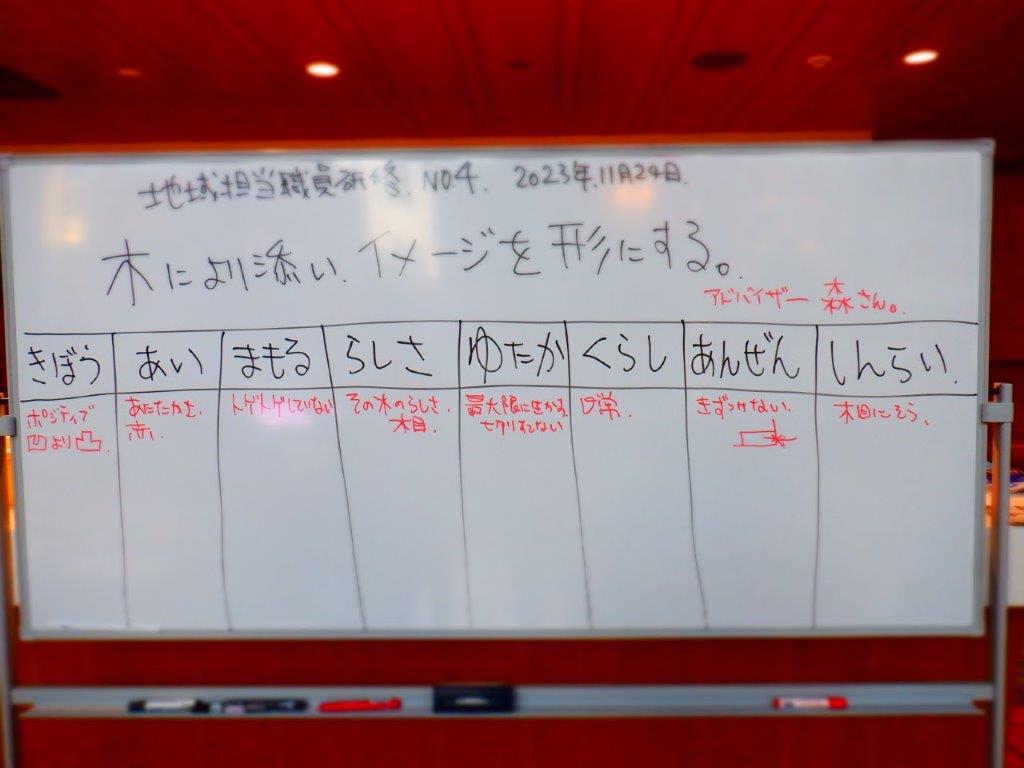 地域担当職員研修. NO.4. 2023年.11月24日.
木により添い. イメージを形にする。
アドバイザー 森さん。
きぼう あい まもる らしさ ゆたか くらし あんぜん しんらい.
ポジティブ
凹より凸.
あたたかを.
赤.
トゲトゲしていない
その木のらしさ.
木目.
最大限に生かす.
日常.
きずつけない.
木目にそう.